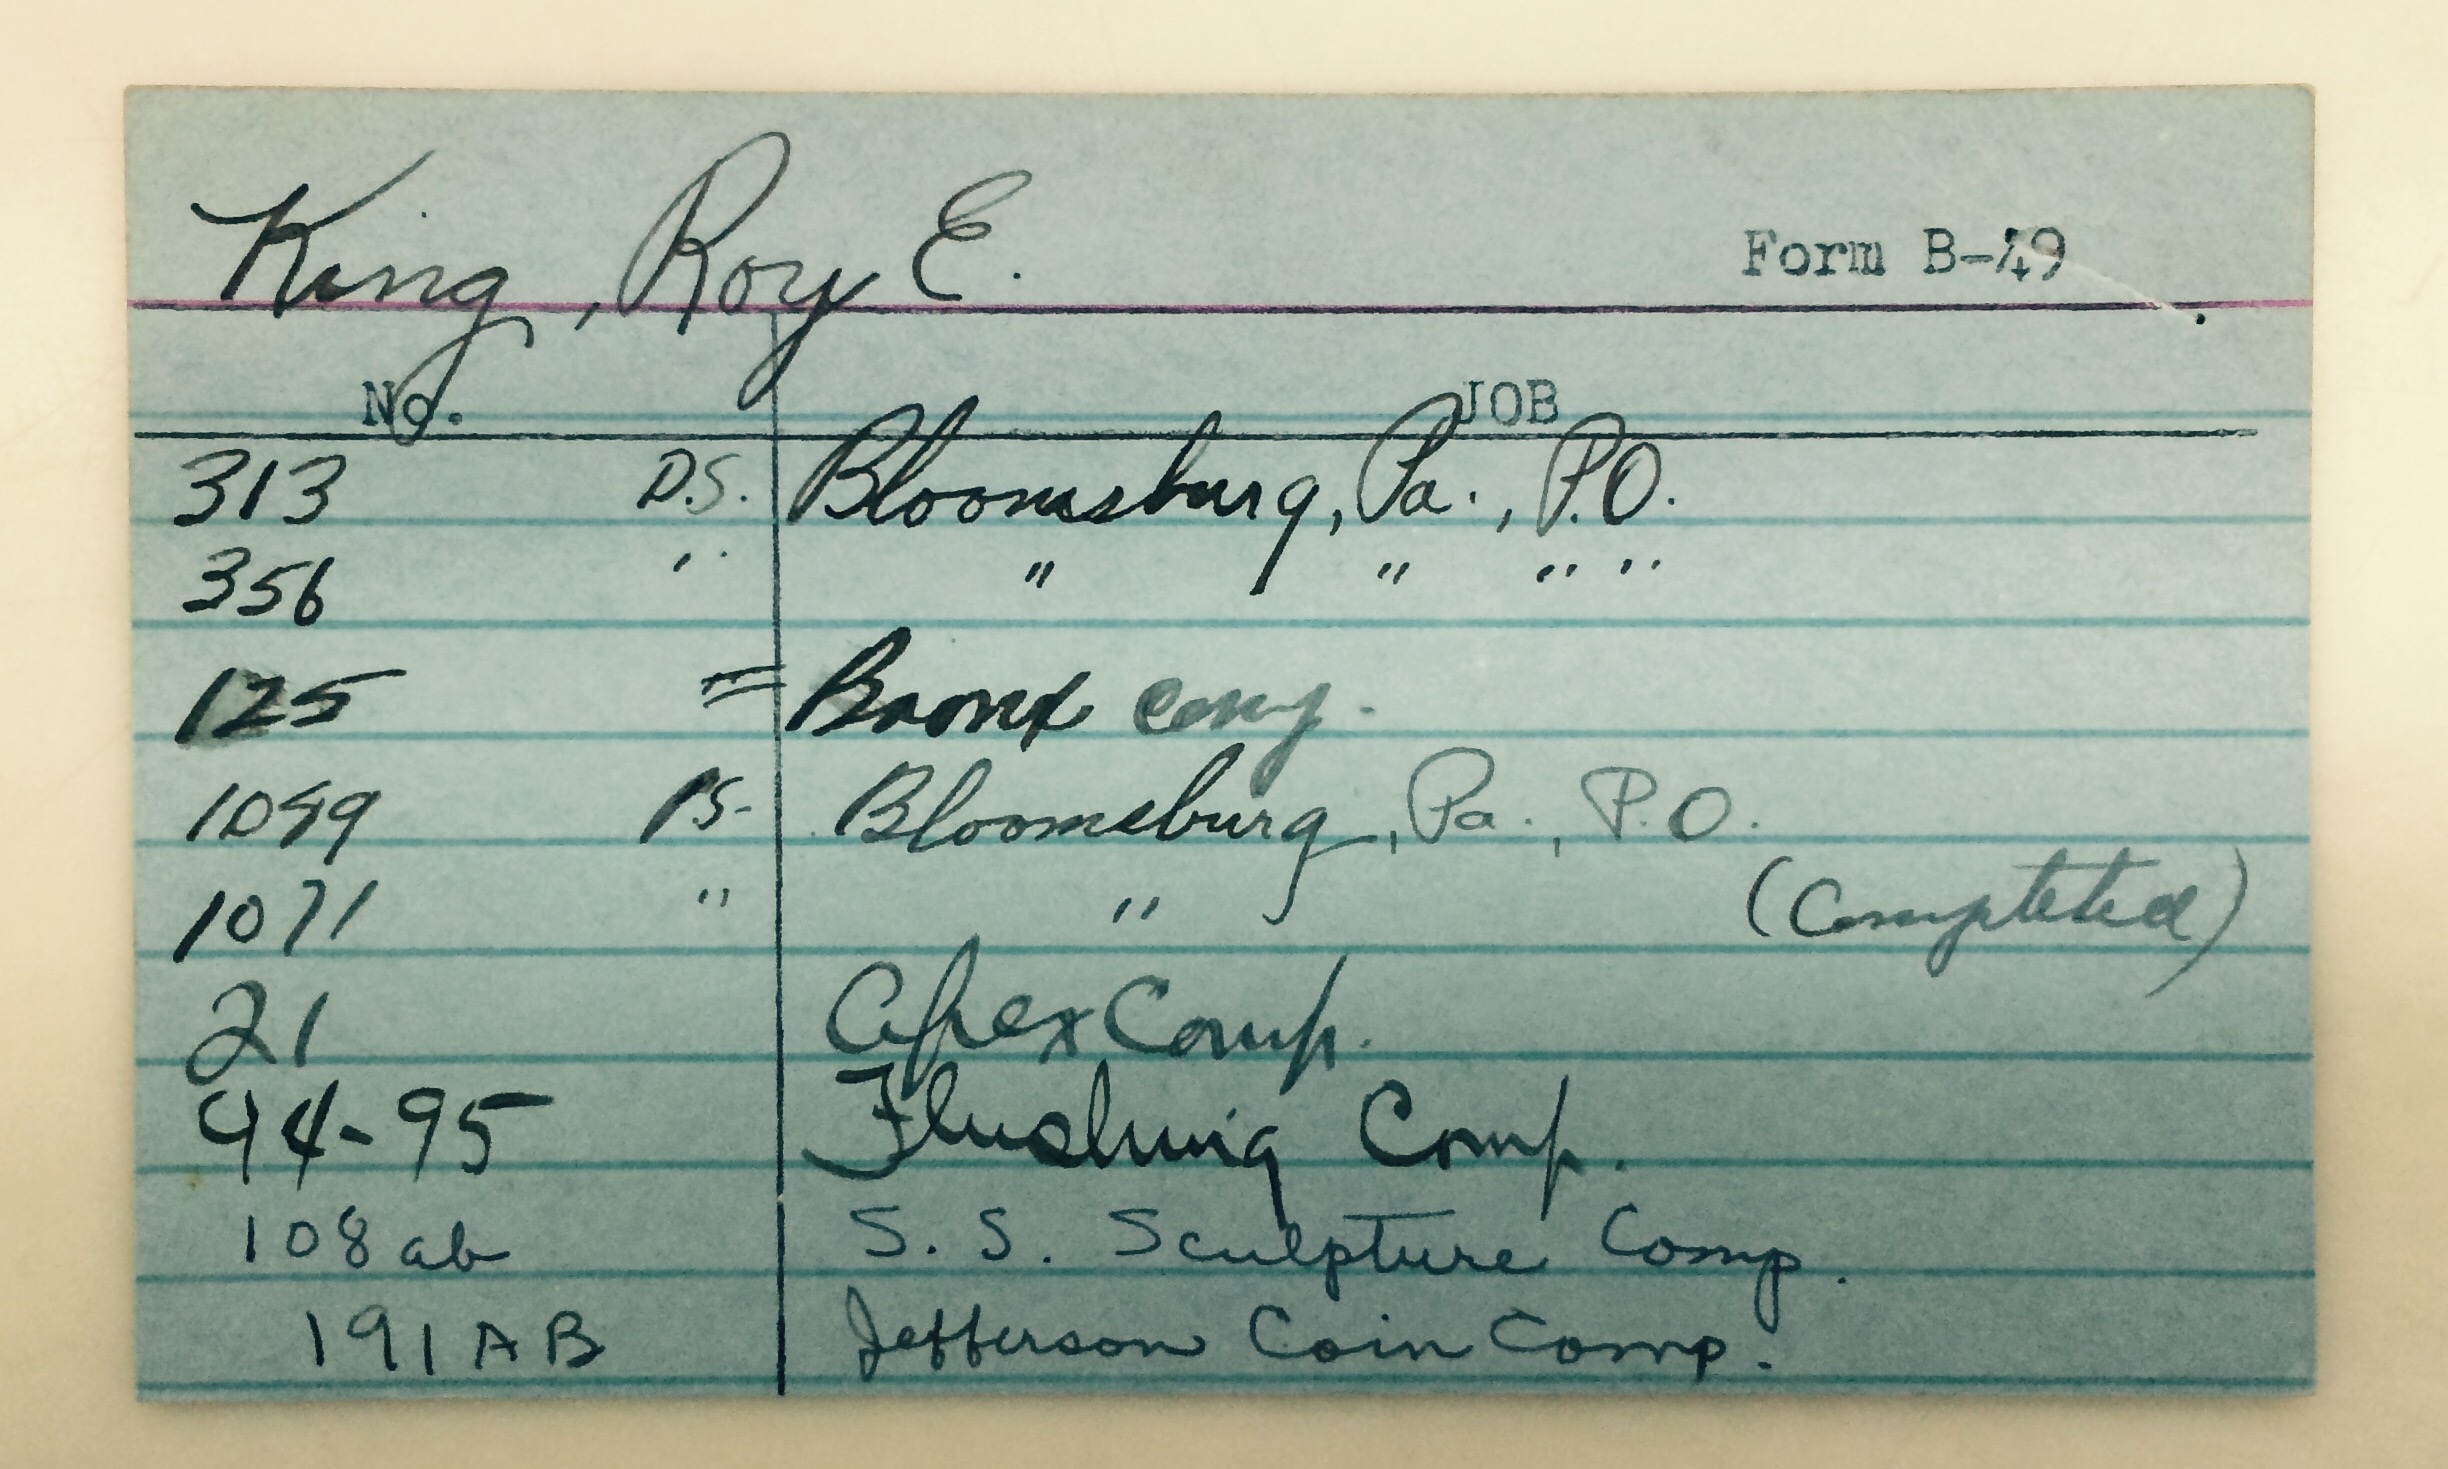 King, Roy E.
Form B-49
No. JOB
313 D.S. Bloomsburg, Pa., P.O.
356 " " " " " "
125 = Bronx comp.
1049 P.S. Bloomsburg, Pa., P.O.
1071 " " (Completed)
21 Apex Comp.
94-95 Flushing Comp.
108 ab S. S. Sculpture Comp.
191 AB Jefferson Coin Comp.